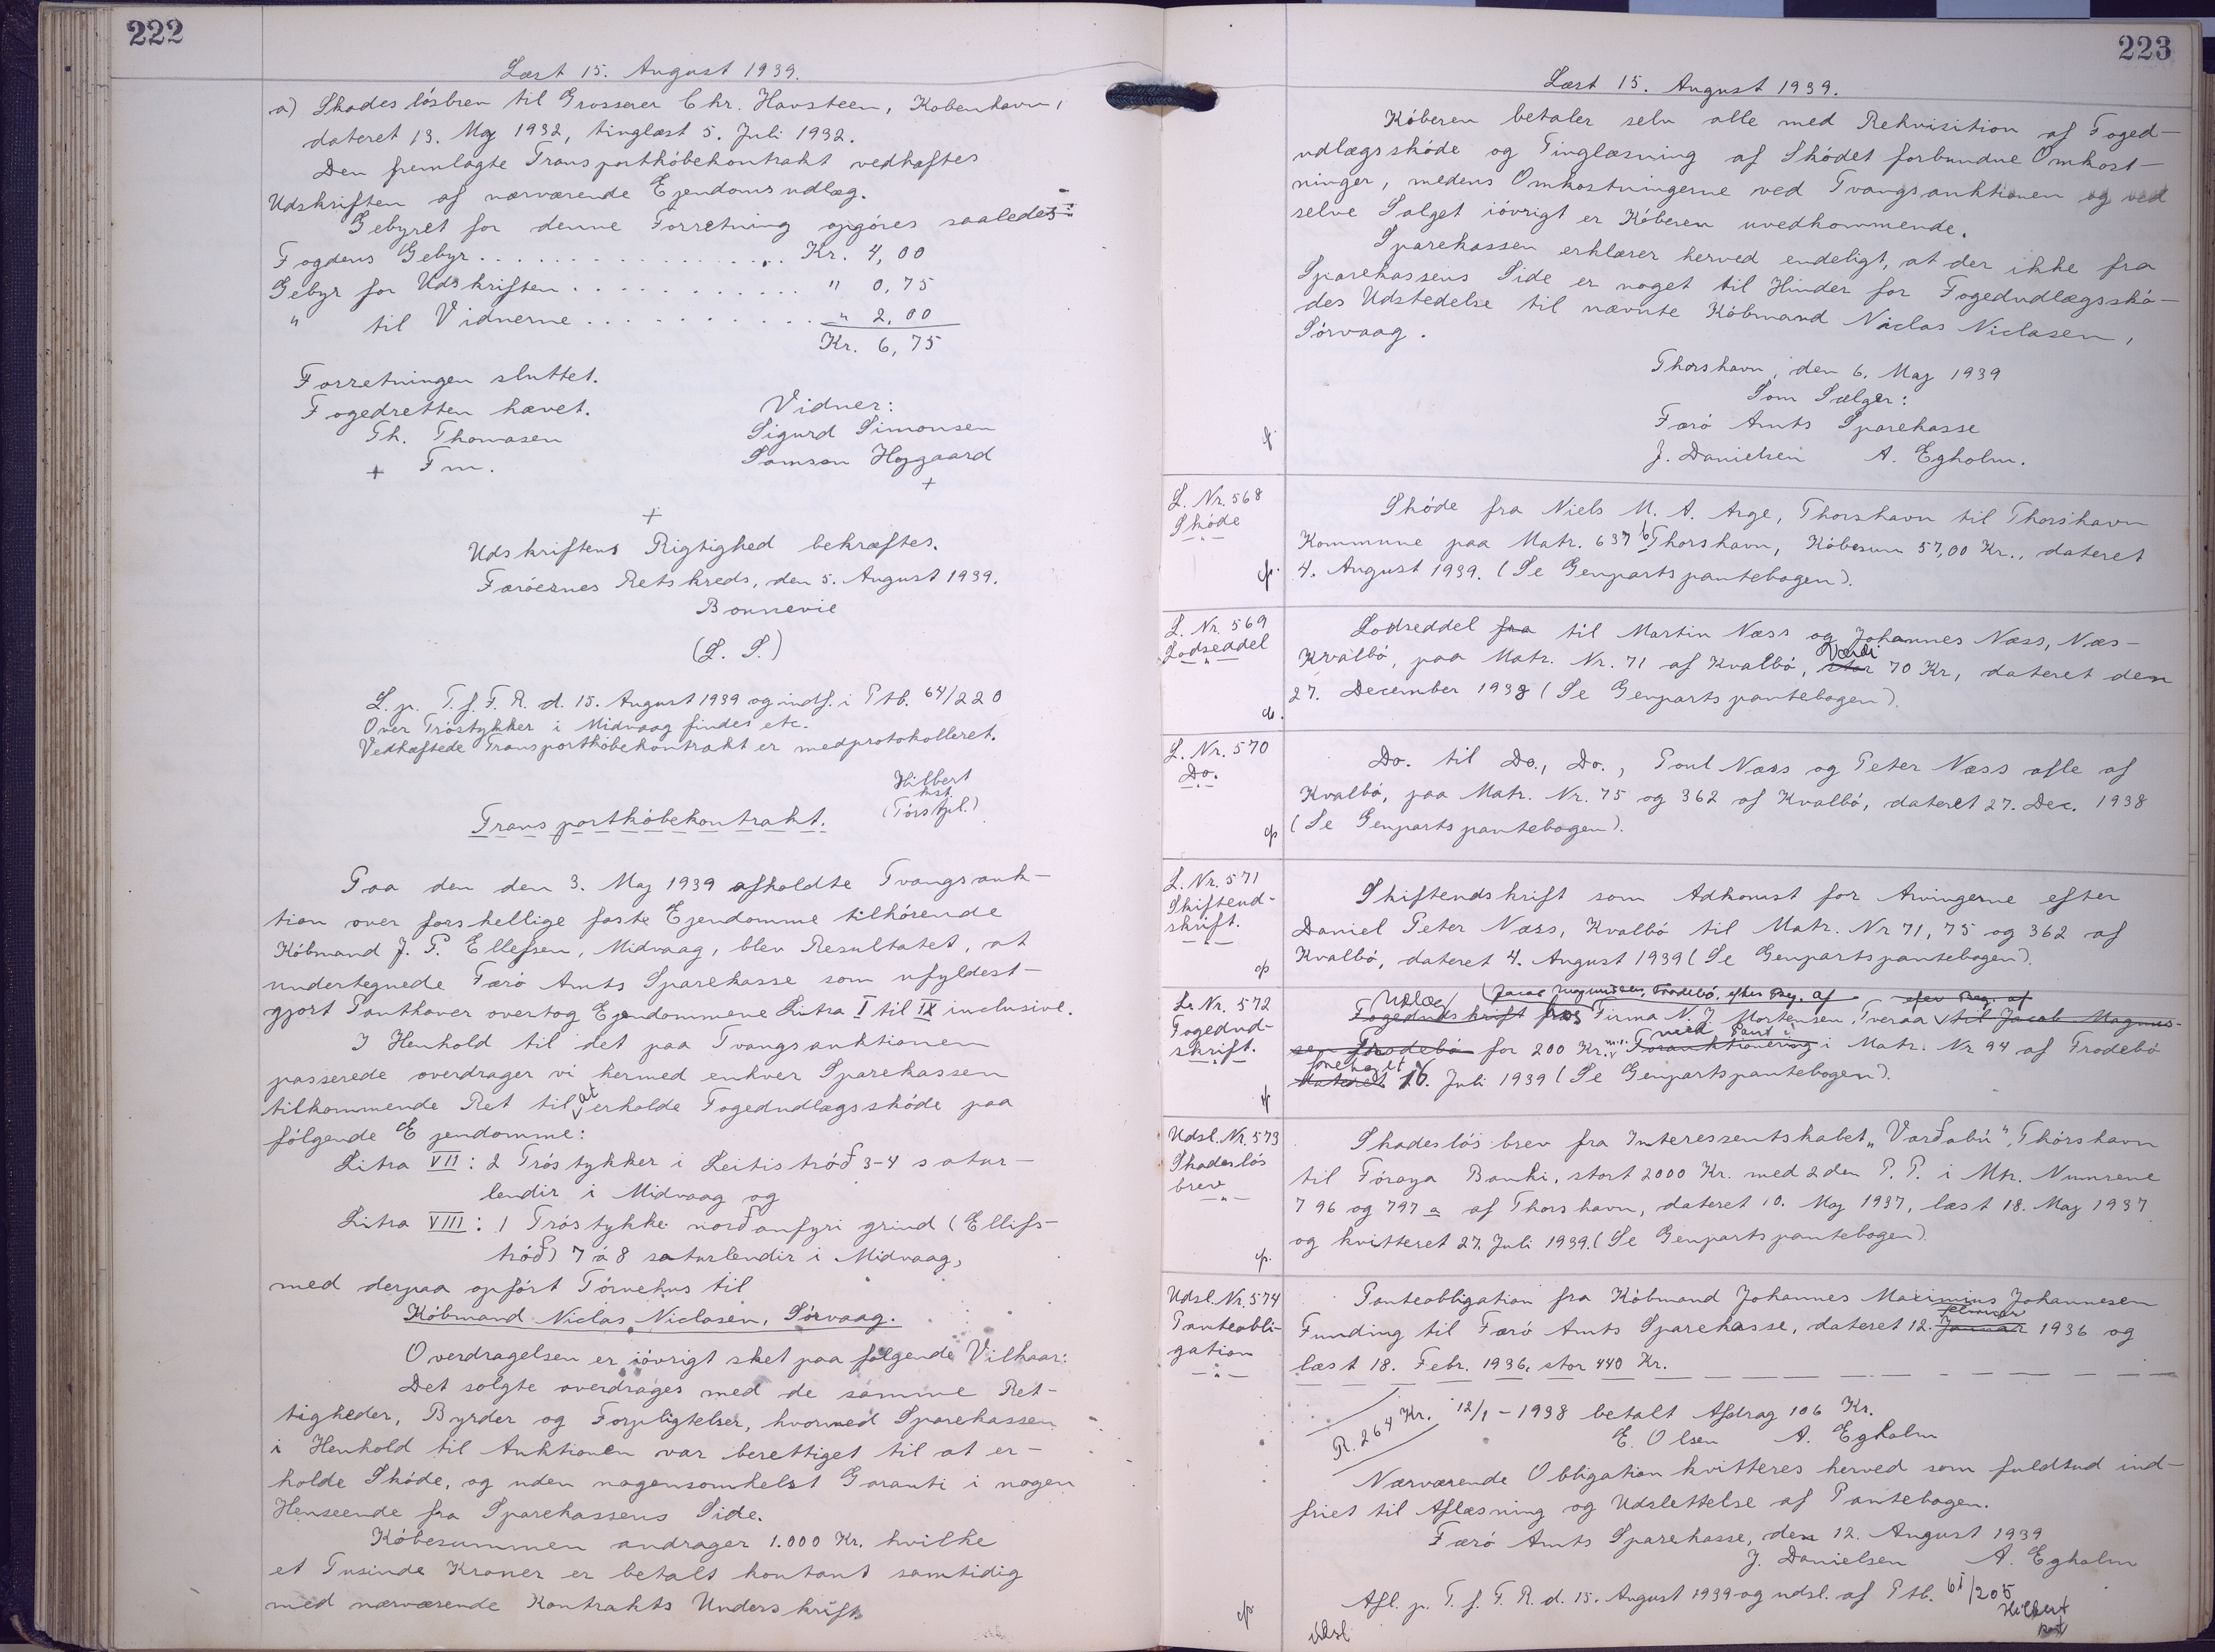 222
Læst 15. August 1939.
a) Skadesløsbrev til Grosserer Chr. Havsteen, København,
dateret 13. Maj 1932, tinglæst 5. Juli 1932.
Den fremlagte Transportkóbekontrakt vedhæftes
Udskriften af nærværende Ejendomsudlæg.
Gebyret for denne Forretning opgóres saaledes:
Fogdens Gebyr . . . . . . . . . . Kr. 4,00
Gebyr for Udskriften . . . . . . . . . . " 0,75
" til Vidnerne . . . . . . . . . . " 2,00
Kr. 6,75
Forretningen sluttet.
Fogedretten hævet.
Vidner:
Th. Thomasen
Sigurd Simonsen
+ Fm.
Samson Højgaard
+
+
Udskriftens Rigtighed bekræftes.
Færóernes Retskreds, den 5. August 1939.
Bonnevie
(L. S.)
L. p. T. f. F. R. d. 15. August 1939 og indf. i Ptb. 64/220
Over Tróstykker i Midvaag findes etc.
Vedhæftede Transportkóbekontrakt er medprotokolleret.
Hilbert
kst.
Transportkóbekontrakt.
Paa den den 3. Maj 1939 afholdte Tvangsauk-
tion over forskellige faste Ejendomme tilhórende
Kóbmand J. P. Ellefsen, Midvaag, blev Resultatet, at
undertegnede Færó Amts Sparekasse som ufyldest-
gjort Panthaver overtog Ejendommene Litra I til IX inclusive.
I Henhold til det paa Tvangsauktionen
passerede overdrager vi hermed enhver Sparekassen
tilkommende Ret til at erholde Fogedudlægsskóde paa
fólgende Ejendomme:
Litra VII: 2 Tróstykker i Leitistróð 3-4 satur-
lendir i Midvaag og
Litra VIII: 1 Tróstykke norðanfyri grind (Ellifs-
tróð) 7 á 8 saturlendir i Midvaag,
med derpaa opfórt Tórvehus til
Kóbmand Niclas Niclasen, Sórvaag.
Overdragelsen er ióvrigt sket paa fólgende Vilkaar:
Det solgte overdrages med de samme Ret-
tigheder, Byrder og Forpligtelser, hvormed Sparekassen
i Henhold til Auktionen var berettiget til at er-
holde Skóde, og uden nogensomhelst Garanti i nogen
Henseende fra Sparekassens Side.
Kóbesummen andrager 1.000 Kr. hvilke
et Tusinde Kroner er betalt kontant samtidig
med nærværende Kontrakts Underskrift
223
Læst 15. August 1939.
Kóberen betaler selv alle med Rekvisition af Foged-
udlægsskóde og Tinglæsning af Skódet forbundne Omkost-
ninger, medens Omkostningerne ved Tvangsauktionen og ved
selve Salget ióvrigt er Kóberen uvedkommende.
Sparekassen erklærer herved endeligt, at der ikke fra
Sparekassens Side er noget til Hinder for Fogedudlægsskó-
des Udstedelse til nævnte Kóbmand Niclas Niclasen,
Sórvaag.
Thorshavn, den 6. Maj 1939
Som Sælger:
Færó Amts Sparekasse
J. Danielsen A. Egholm.
L. Nr. 568
Skóde
Skóde fra Niels M. A. Arge, Thorshavn til Thorshavn
Kommune paa Matr. 637 b Thorshavn, Kóbesum 57,00 Kr., dateret
4. August 1939. (Se Genpartspantebogen).
L. Nr. 569
Lodseddel
Lodseddel fra til Martin Næss og Johannes Næss, Næs-
Kvalbó, paa Matr. Nr. 71 af Kvalbó, stor Værdi 70 Kr, dateret den
27. December 1938 (Se Genpartspantebogen).
L. Nr. 570
Do.
Do. til Do., Do., Poul Næss og Peter Næss alle af
Kvalbó, paa Matr. Nr. 75 og 362 af Kvalbó, dateret 27. Dec. 1938
(Se Genpartspantebogen).
L. Nr. 571
Skifteud-
skrift.
Skifteudskrift som Adkomst for Arvingerne efter
Daniel Peter Næss, Kvalbó til Matr. Nr 71, 75 og 362 af
Kvalbó, dateret 4. August 1939 (Se Genpartspantebogen).
L. Nr. 572
Fogedud-
skrift.
Udlæg (Jacob Magnussen, Frodebó, efter Beg. af efter Beg. af
Fogedudskrift fra hos Firma N. J. Mortensen, Tveraa til Jacob Magnus-
sen Frodebó for 200 Kr. m.v. Forauktionering med Pant i i Matr. Nr 94 af Frodebó
dateret foretaget 16. Juli 1939 (Se Genpartspantebogen).
Udsl. Nr. 573
Skadeslós
brev
Skadeslósbrev fra Interessentskabet „Varðabú", Thórshavn
til Fóroya Banki, stort 2000 Kr. med 2den P. P. i Mtr. Numrene
796 og 797 a af Thorshavn, dateret 10. Maj 1937, læst 18. Maj 1937
og kvitteret 27. Juli 1939. (Se Genpartspantebogen).
Udsl. Nr. 574
Panteobli-
gation
Panteobligation fra Kóbmand Johannes Maximius Johannesen
Funding til Færó Amts Sparekasse, dateret 12. Januar februar 1936 og
læst 18. Febr. 1936, stor 440 Kr.
R. 264 Kr. 12/1 - 1938 betalt Afdrag 106 Kr.
E. Olsen A. Egholm
Nærværende Obligation kvitteres herved som fuldtud ind-
friet til Aflæsning og Udslettelse af Pantebogen.
Færó Amts Sparekasse, den 12. August 1939
J. Danielsen A. Egholm
Afl. p. T. f. F. R. d. 15. August 1939 og udsl. af Ptb. 61/205
Hilbert
kst
Udsl